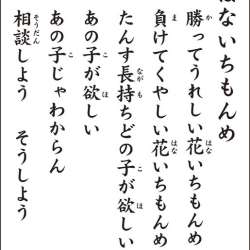 はないちもんめ
か はな
勝ってうれしい花いちもんめ
ま はな
負けてくやしい花いちもんめ
ながも こ ほ
たんす長持ちどの子が欲しい
こ ほ
あの子が欲しい
こ
あの子じゃわからん
そうだん
相談しよう そうしよう